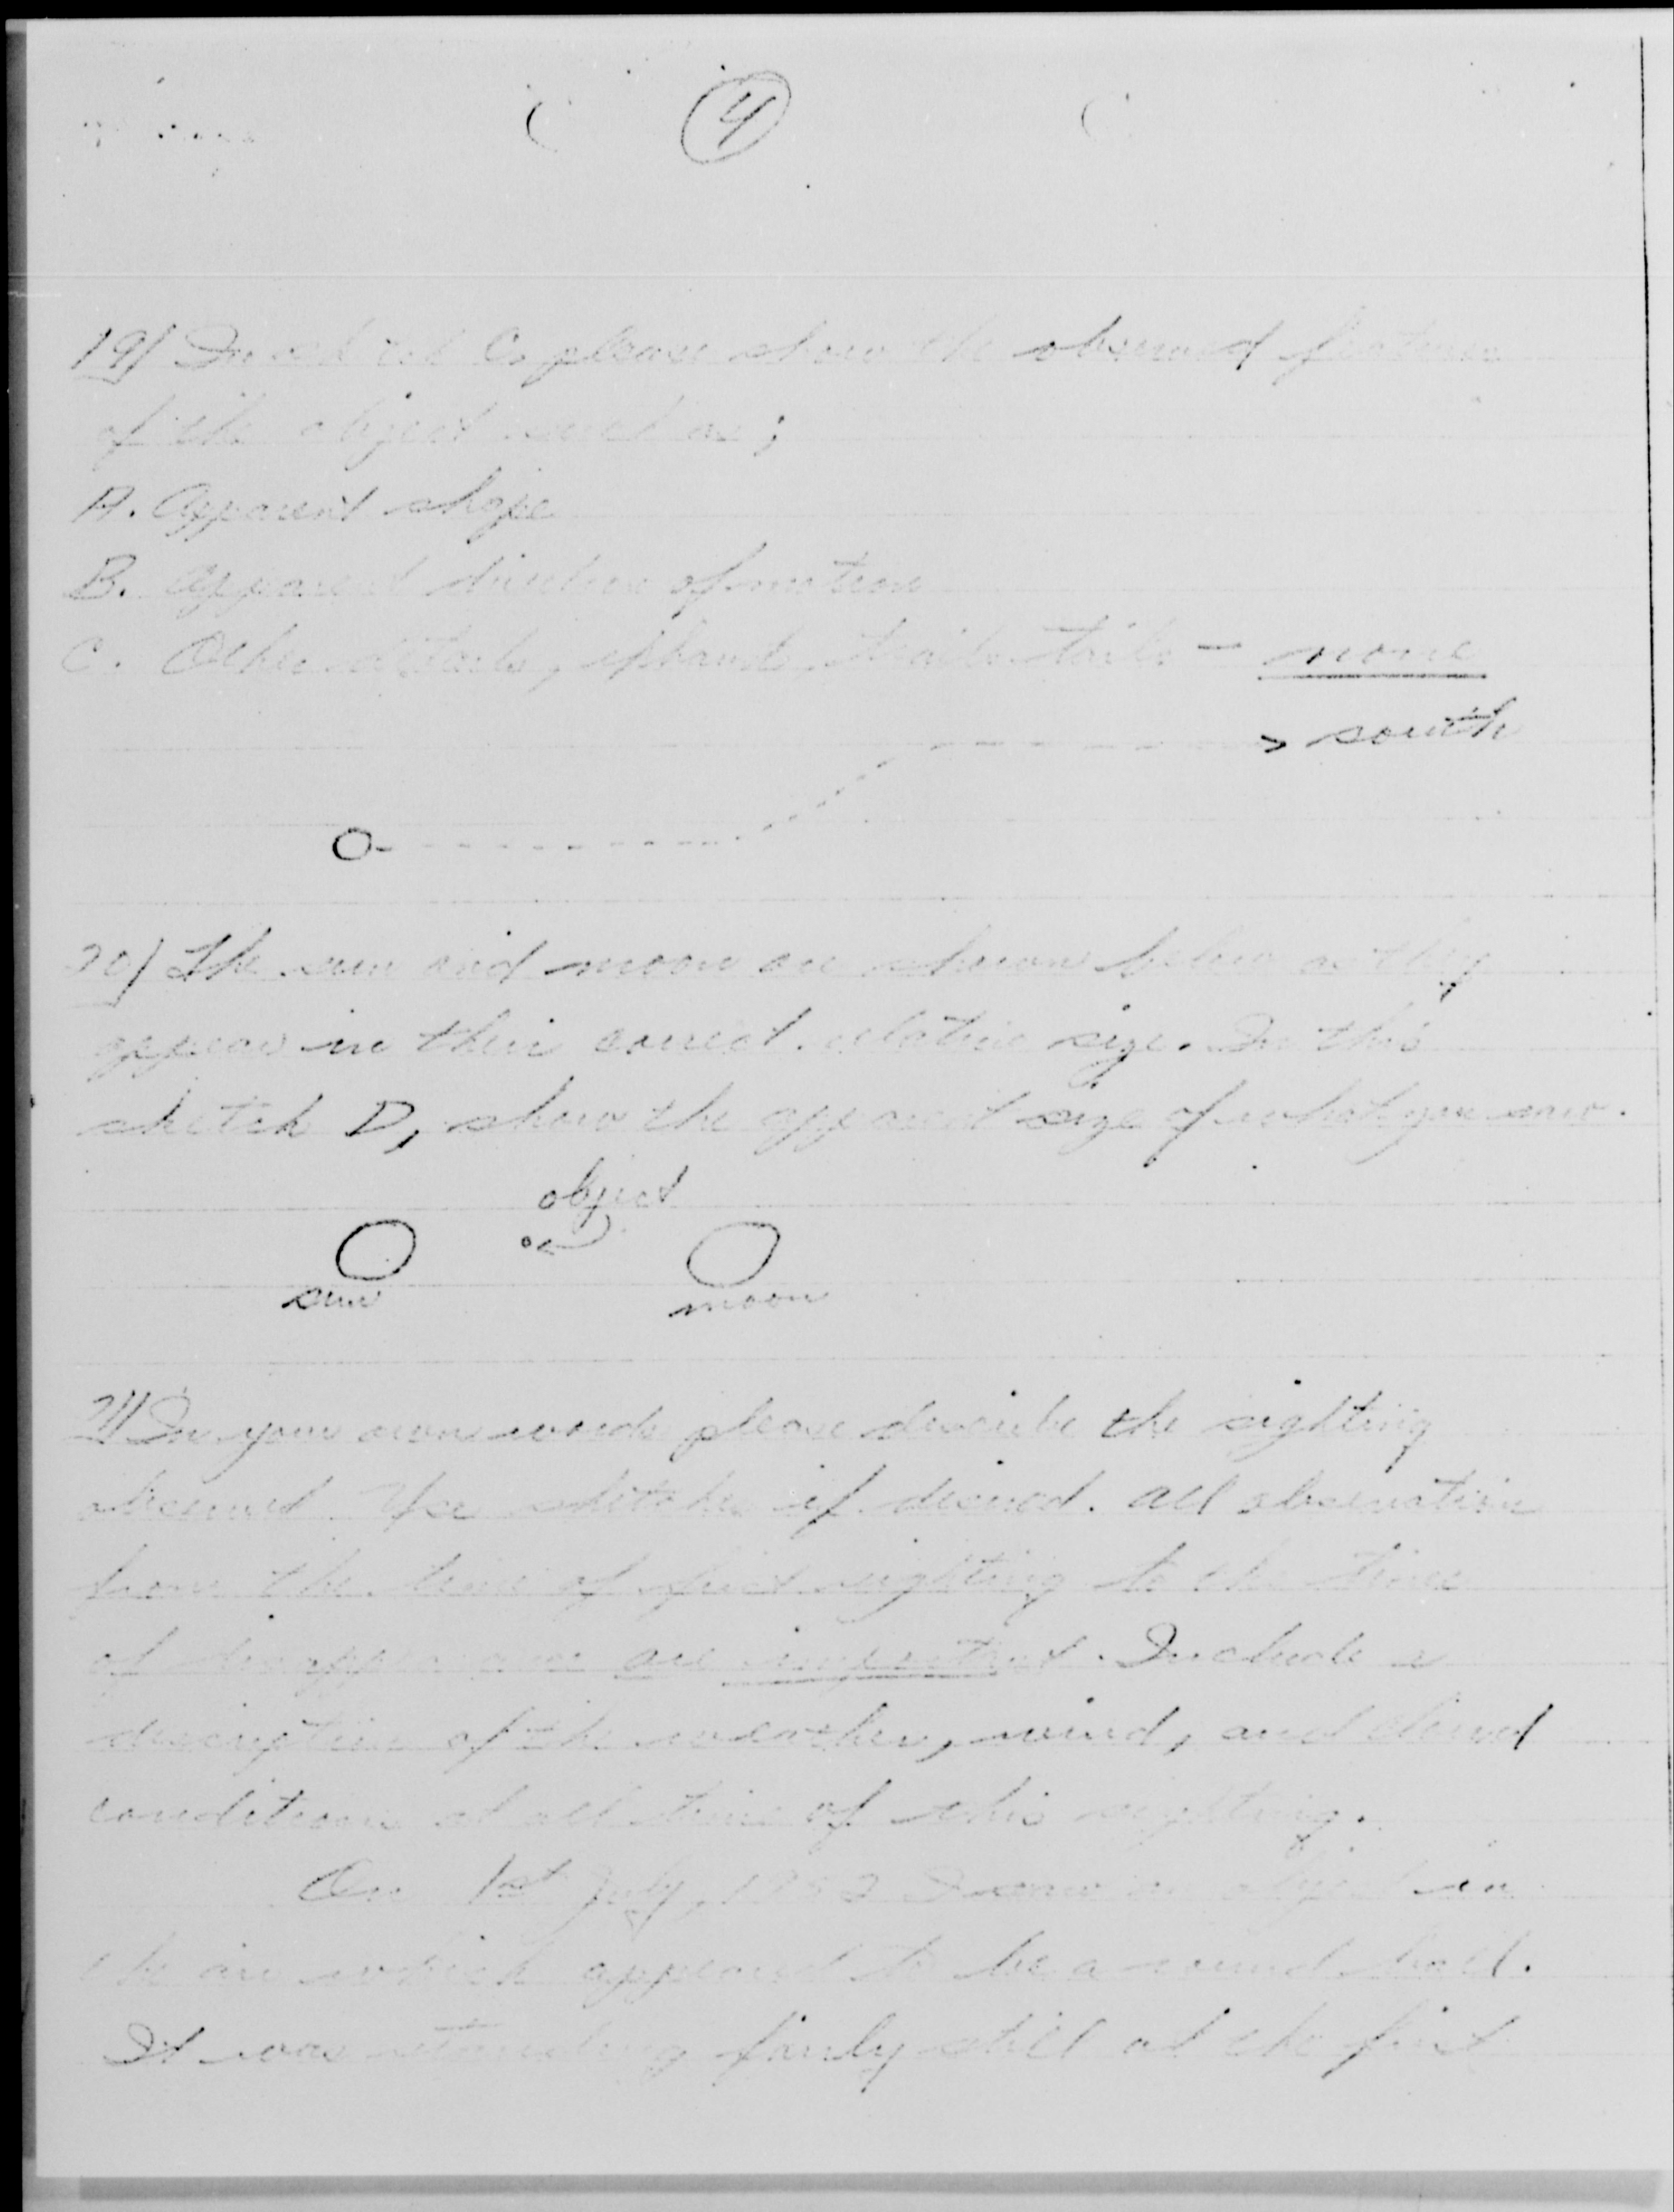 4
19) In sketch C, please show the observed features
of the object such as;
A. Apparent shape
B. Apparent direction of motion
C. Other details, exhaust, trails tails - none
> south
20) The sun and moon are shown below as they
appear in their correct relative size. In this
sketch D, show the apparent size of what you saw.
object
sun
moon
21) In your own words please describe the sighting
observed. Use sketches if desired. All observation
from the time of first sighting to the time
of disappearance are important. Include a
description of the weather, wind, and cloud
conditions at all time of this sighting.
On 1st July, 1952 I saw an object in
the air which appeared to be a round ball.
It was standing fairly still at the first